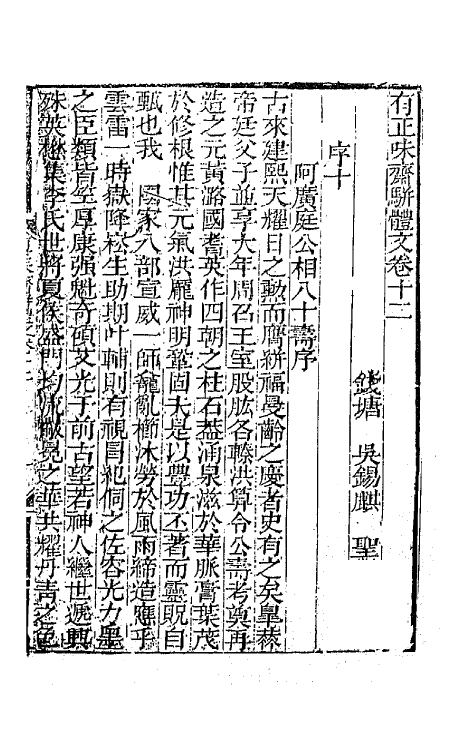 有正味齋駢體文卷十二
錢塘 吳錫麒 聖
序十
阿廣庭公相八十壽序
古來建熙天耀日之勲而膺絣福曼齡之慶者史有之矣臯蘇
帝廷父子並享大年周召王室股肱各轃洪算令公壽考奠再
造之元黃潞國耆英作四朝之柱石葢涌泉滋於華脈膏葉茂
於修根惟其元氣洪龎神明鞏固夫是以豐功丕著而靈貺自
甄也我 國家八部宣威一師龕亂櫛沐勞於風雨締造應乎
雲雷一時嶽降崧生助期叶輔則有視冒祀侗之佐容光力墨
之臣類皆笁厚康强魁奇碩艾光于前古望若神人繼世遞興
殊英懋集李氏世將夏侯盛門均流黻冕之華共耀丹靑之色